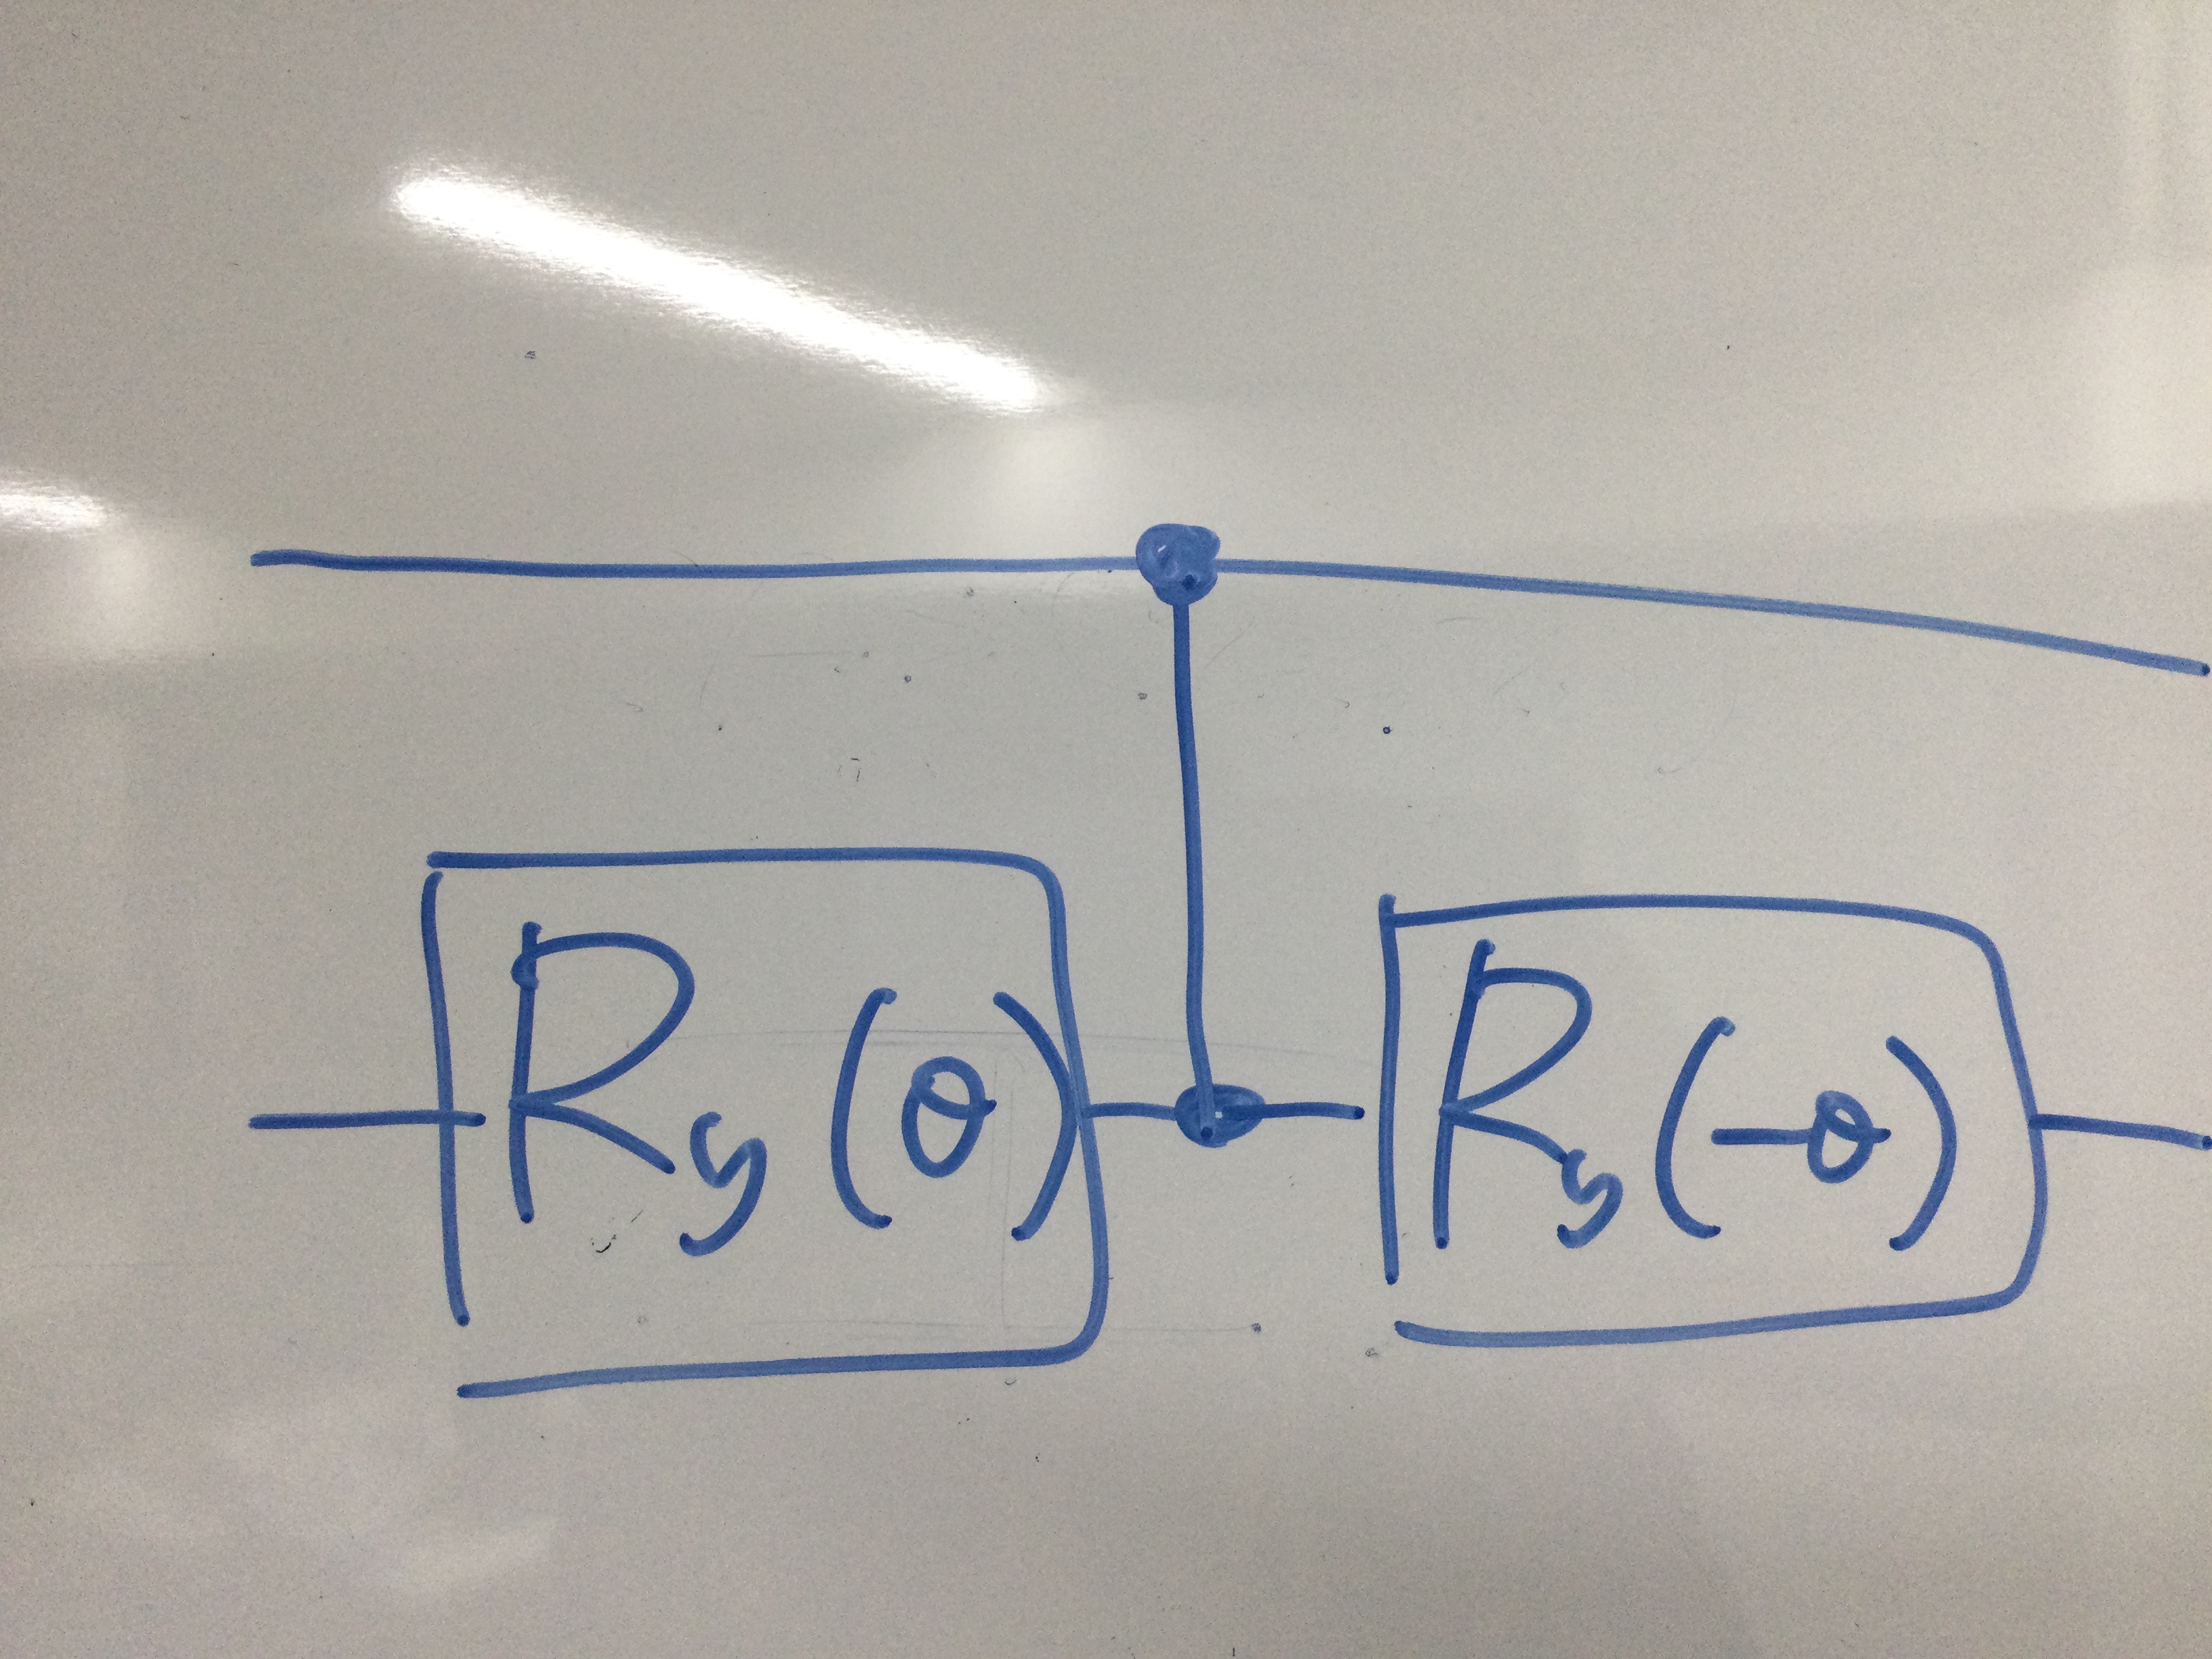 Ry(θ) Ry(-θ)